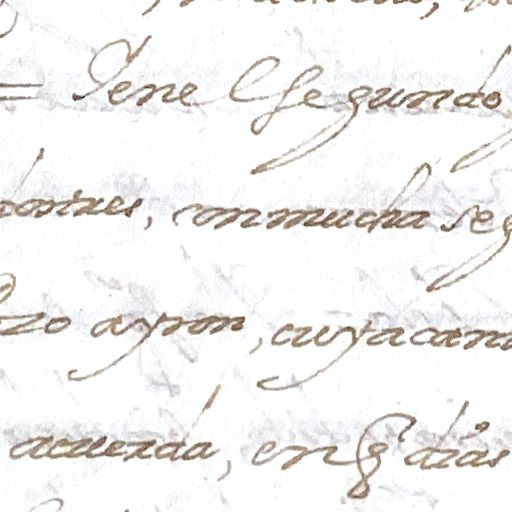 = Yenel Segundo
dontres, con mucha seg
zo ayron, cuya cant
acuerda, en q dias